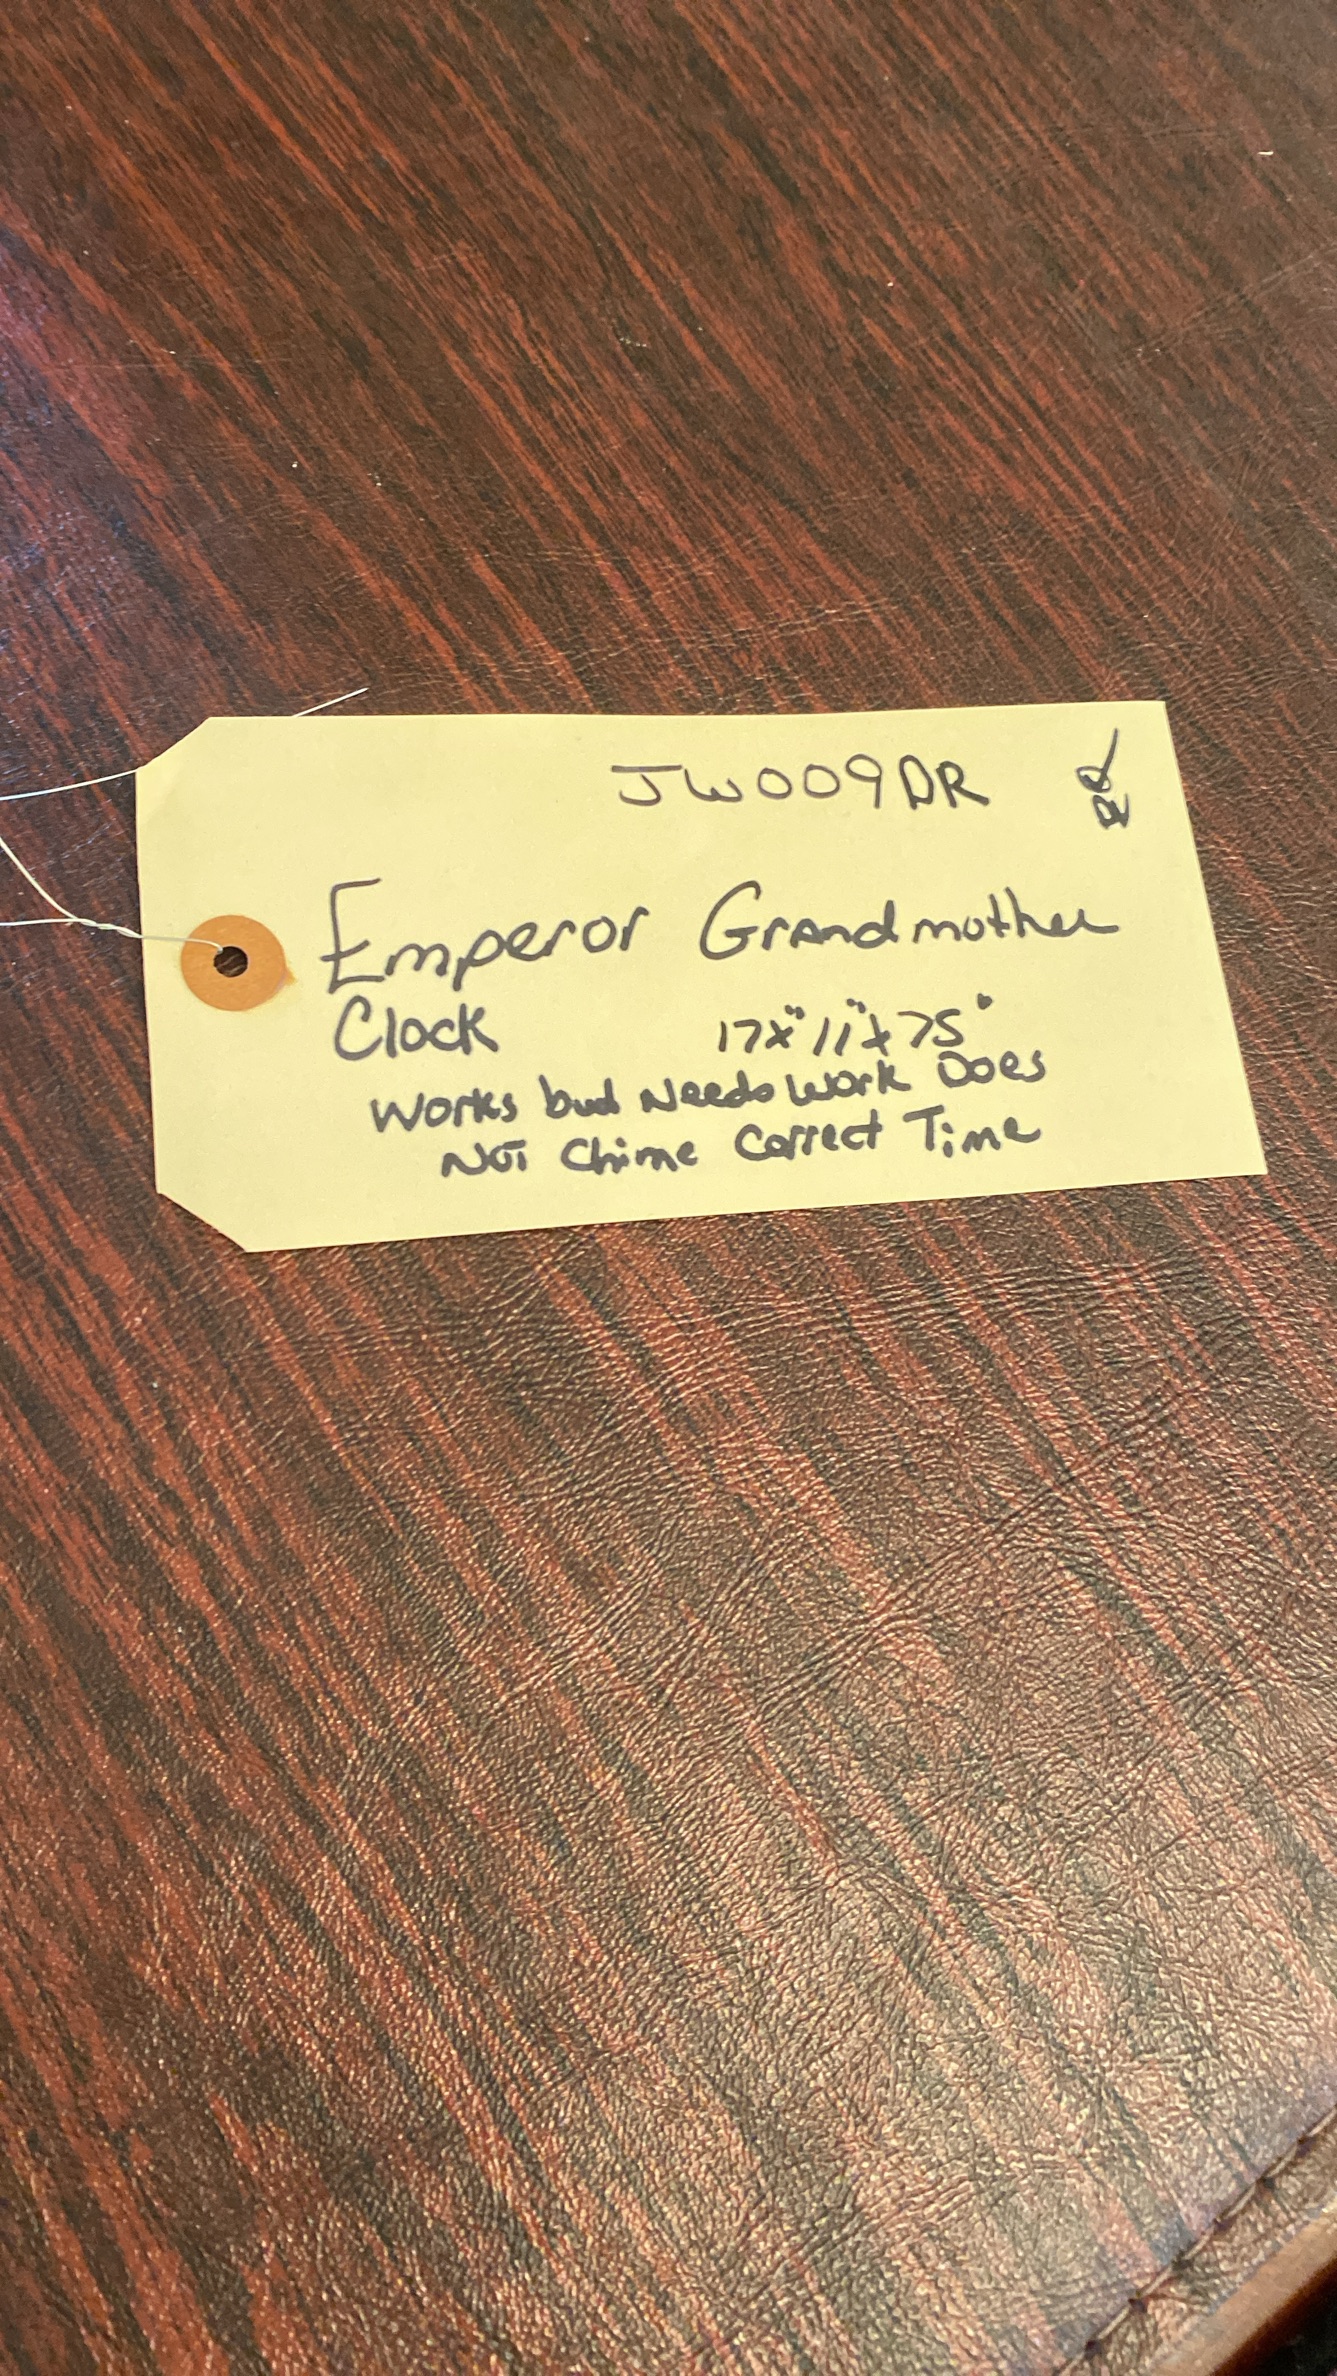 JW009DR
Emperor Grandmother
Clock 17x" 11"x 75"
Works but Needs Work Does
Not Chime Correct Time